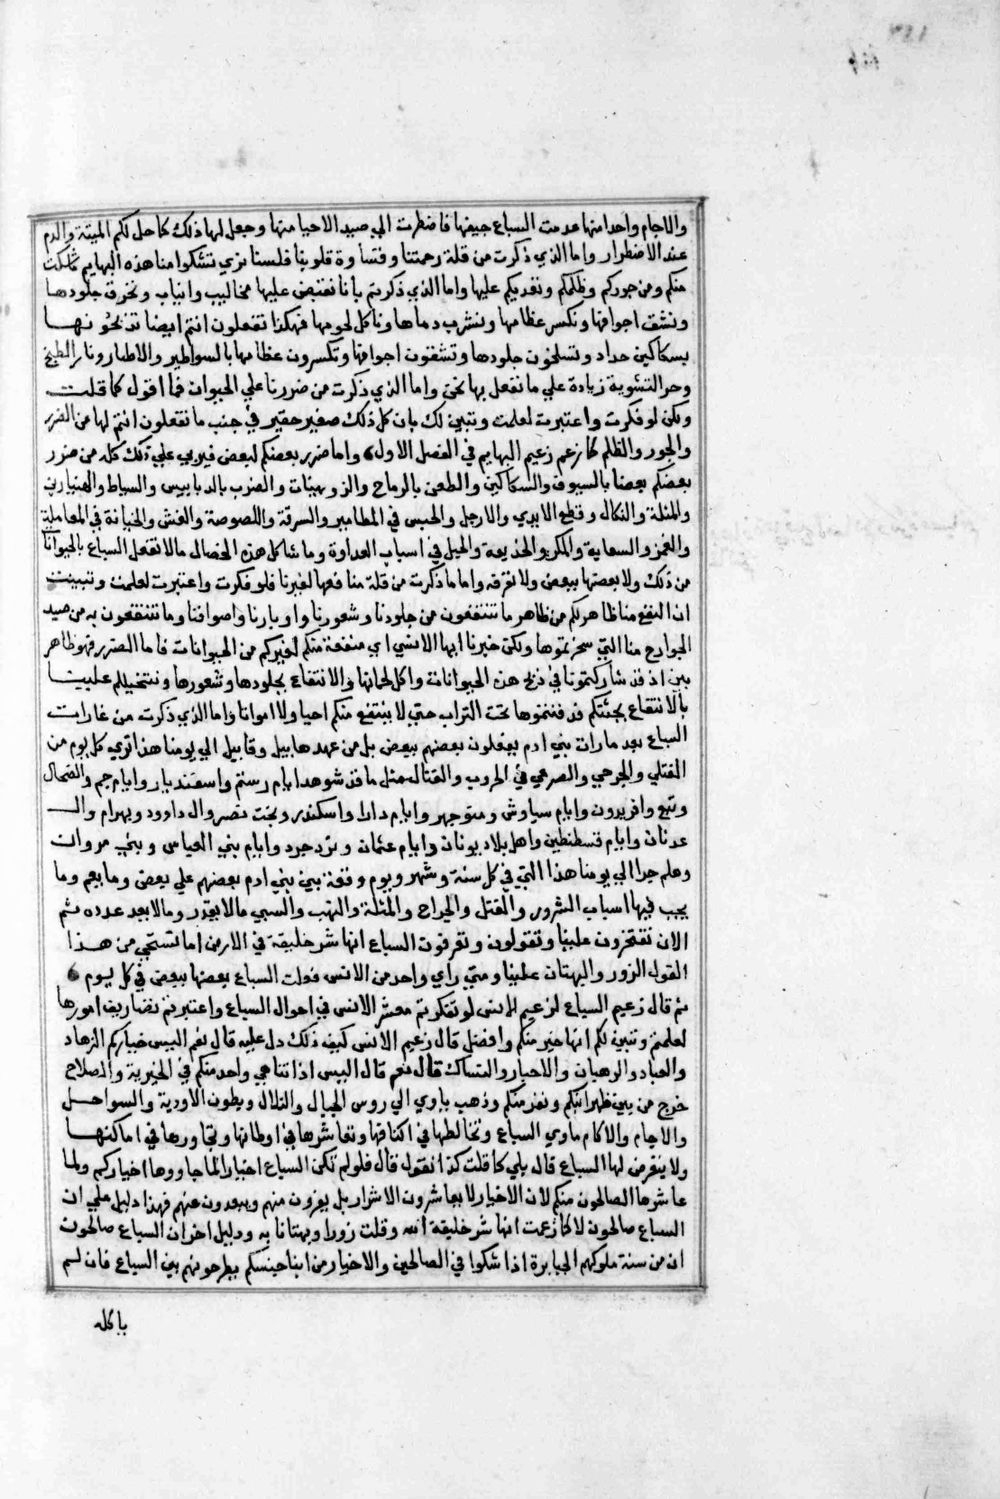 والاجام واحدا منها عدمت السباع جيفها فاضطرت الي صيد الاحيا منها وجعل لها ذلك كما حل لكم الميتة والدم
عند الاضطرار واما الذي ذكرت من قلة رحمتنا وقساوة قلوبنا فلسنا نري تشكوا منا هذه البهايم كما شكت
منكم ومن جوركم وظلمكم وتعديكم عليها واما الذي ذكرتم بأنا نقبض عليها مخاليب وانياب ونخرق جلودها
ونشق اجوافها ونكسر عظامها ونشرب دماها وناكل لحومها فهكذا تفعلون انتم ايضا تذبحونها
بسكاكين حداد وتسلخون جلودها وتشقون اجوافها وتكسرون عظامها بالسواطير والاطبار ونار الطبخ
وحر التشوية زيادة علي ما نفعل بها نحن واما الذي ذكرت من ضررنا علي الحيوان فما اقول كما قلت
ولكن لو فكرت واعتبرت لعلمت وتبين لك بان كل ذلك صغير حقير في جنب ما تفعلون انتم لها من الضرر
والجور والظلم كما زعم زعيم البهايم في الفصل الاول واما ضرر بعضكم لبعض فيربي علي ذلك كله من ضرر
بعضكم بعضا بالسيوف والسكاكين والطعن بالرماح والزوبينات والضرب بالدبابيس والسياط والعقابين
والمثلة والنكال وقطع الايدي والارجل والحبس في المطامير والسرقة واللصوصة والغش والخيانة في المعاملة
والغمز والسعاية والمكر والخديعة والحيل في اسباب العداوة وما شاكل هذه الخصال مالا تفعل السباع بالحيوانات
من ذلك ولا بعضها ببعض ولا تعرفه واما ما ذكرت من قلة منافعها لغيرنا فلو فكرت واعتبرت لعلمت وتبينت
ان النفع منا ظاهر لكم من ظاهر ما تنتفعون من جلودنا وشعورنا واوبارنا واصوافنا وما تنتفعون به من صيد
الجوارح منا التي سخرتموها ولكن خبرنا ايها الانسي اي منفعة منكم لغيركم من الحيوانات فاما الضرر فهو ظاهر
بين اذ قد شاركتمونا في ذبح هذه الحيوانات واكل لحمانها والانتفاع بجلودها وشعورها وبخلكم علينا
بالانتفاع بجثتكم قد دفنتموها تحت التراب حتي لا ينتفع منكم احيا ولا امواتا واما الذي ذكرت من غارات
السباع بعد ما رات بني ادم يفعلون بعضهم ببعض بل من عهد هابيل وقابيل الي يومنا هذا تري كل يوم من
القتلي والجرحي والصرعي في الحروب والقتال مثل ما قد شوهد ايام رستم واسفنديار وايام جم والضحاك
وتبع وافريدون وايام سياوش ومنوجهر وايام دارا واسكندر وبخت نصر وال داوود وبهرام وال
عدنان وايام قسطنطين واهل بلاد يونان وايام عثمان ويزدجرد وايام بني العباس وبني مروان
وهلم جرا الي يومنا هذا التي في كل سنة وشهر ويوم وقعة بين بني ادم بعضهم علي بعض وما يعم وما
يجب فيها اسباب الشرور والقتل والجراح والمثلة والنهب والسبي مالا يقدر ومالا يعد عدده ثم
الان تفتخرون علينا وتقولون وتقرفون السباع انها شر خليقة في الارض اما تستحي من هذا
القول الزور والبهتان علينا ومتي راي واحد من الانس فعلت السباع بعضها ببعض في كل يوم
ثم قال زعيم السباع لزعيم الانس لو تفكرتم معشر الانس في احوال السباع واعتبرتم تصاريف امورها
لعلمتم وتبين لكم انها خير منكم وافضل قال زعيم الانس كيف ذلك دل عليه قال نعم اليس خياركم الزهاد
والعباد والرهبان والاحبار والنساك قال نعم قال اليس اذا تناهي واحد منكم في الخيرية والصلاح
خرج من بين ظهرانيكم ونفر منكم وذهب ياوي الي روس الجبال والتلال وبطون الاودية والسواحل
والاجام والاكام ماوي السباع وتخالطها في اكنافها وتعاشرها في اوطانها وتجاورها في اماكنها
ولا يتعرض لها السباع قال بلي كما قلت كذا نقول قال فلو لم تكن السباع اخيارا لما جاوروها اخياركم ولما
عاشرها الصالحون منكم لان الاخيار لا يعاشرون الاشرار بل يفرون منهم ويبعدون عنهم فهذا دليل علي ان
السباع صالحون لا كما زعمت انها شر خليقة الله وقلت زورا وبهتانا به ودليل اخر ان السباع صالحون
ان من سنة ملوكهم الجبابرة اذا شكوا في الصالحين والاخيار من ابنا جنسكم يطرحونهم بين السباع فان لم
ياكله